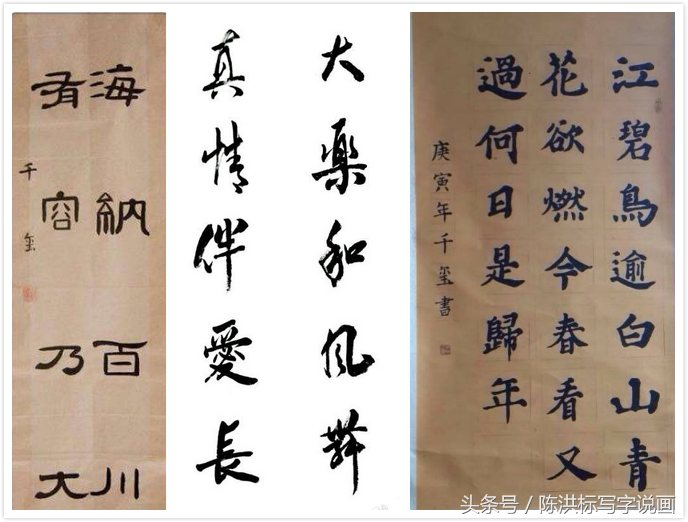 海納百川
有容乃大
千玺
大樂和风
真情伴愛長
江碧鳥逾白山青
花欲燃今春看又
過何日是歸年
庚寅年千玺書
头条号 / 陈洪标写字说画